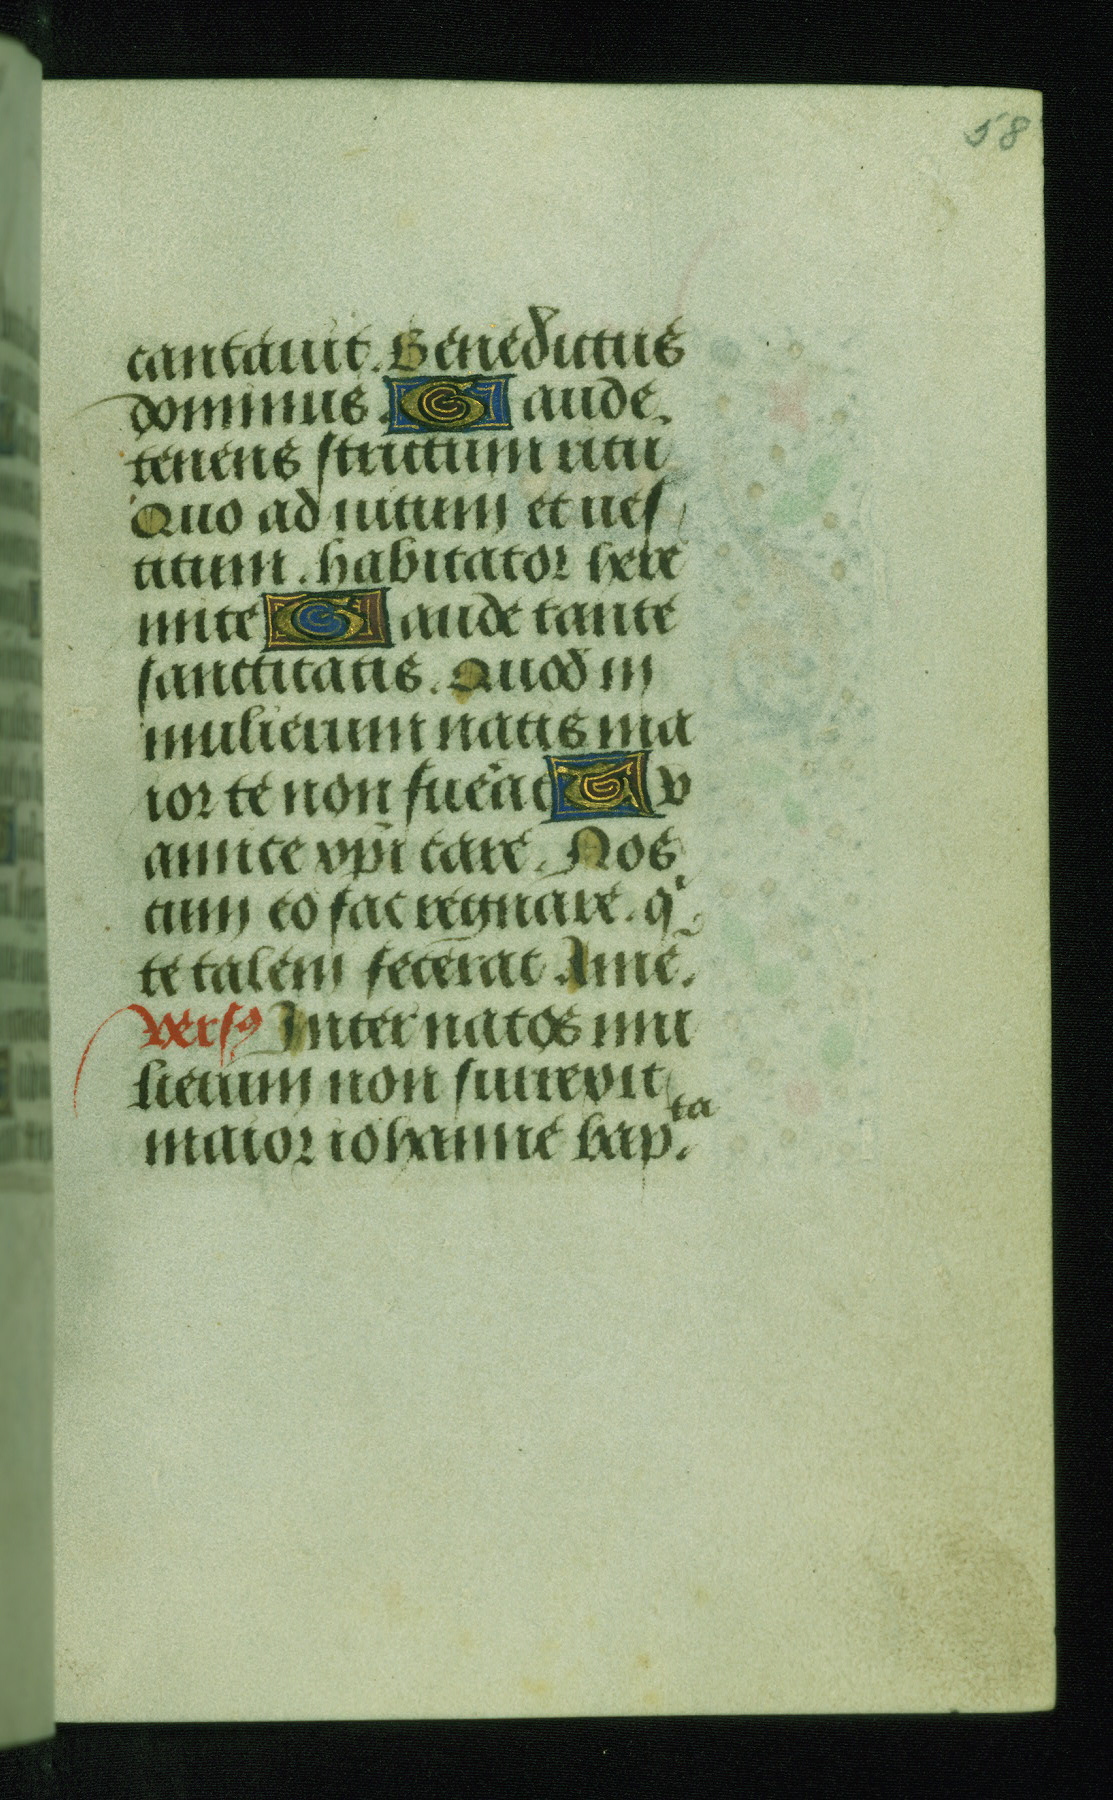 58
cantauit. Benedictus
dominus. Gaude
tenens strictum ritu
Quo ad uitum et ues
titum. habitator here
mite Gaude tante
sanctitatis. Quod in
mulierum natis ma
ior te non fuerat
annite xpi care. Nos
cum eo fac regnare. q'
te talem fecerat Ame.
Versꝰ Inter natos mu
lierum non surrexit
maior iohanne bap.ta